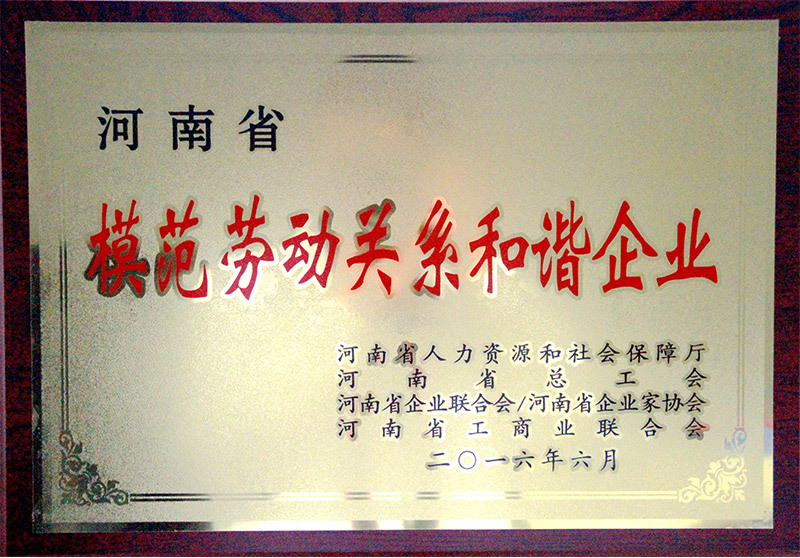 河南省
模范劳动关系和谐企业
河南省人力资源和社会保障厅
河南省总工会
河南省企业联合会/河南省企业家协会
河南省工商业联合会
二〇一六年六月